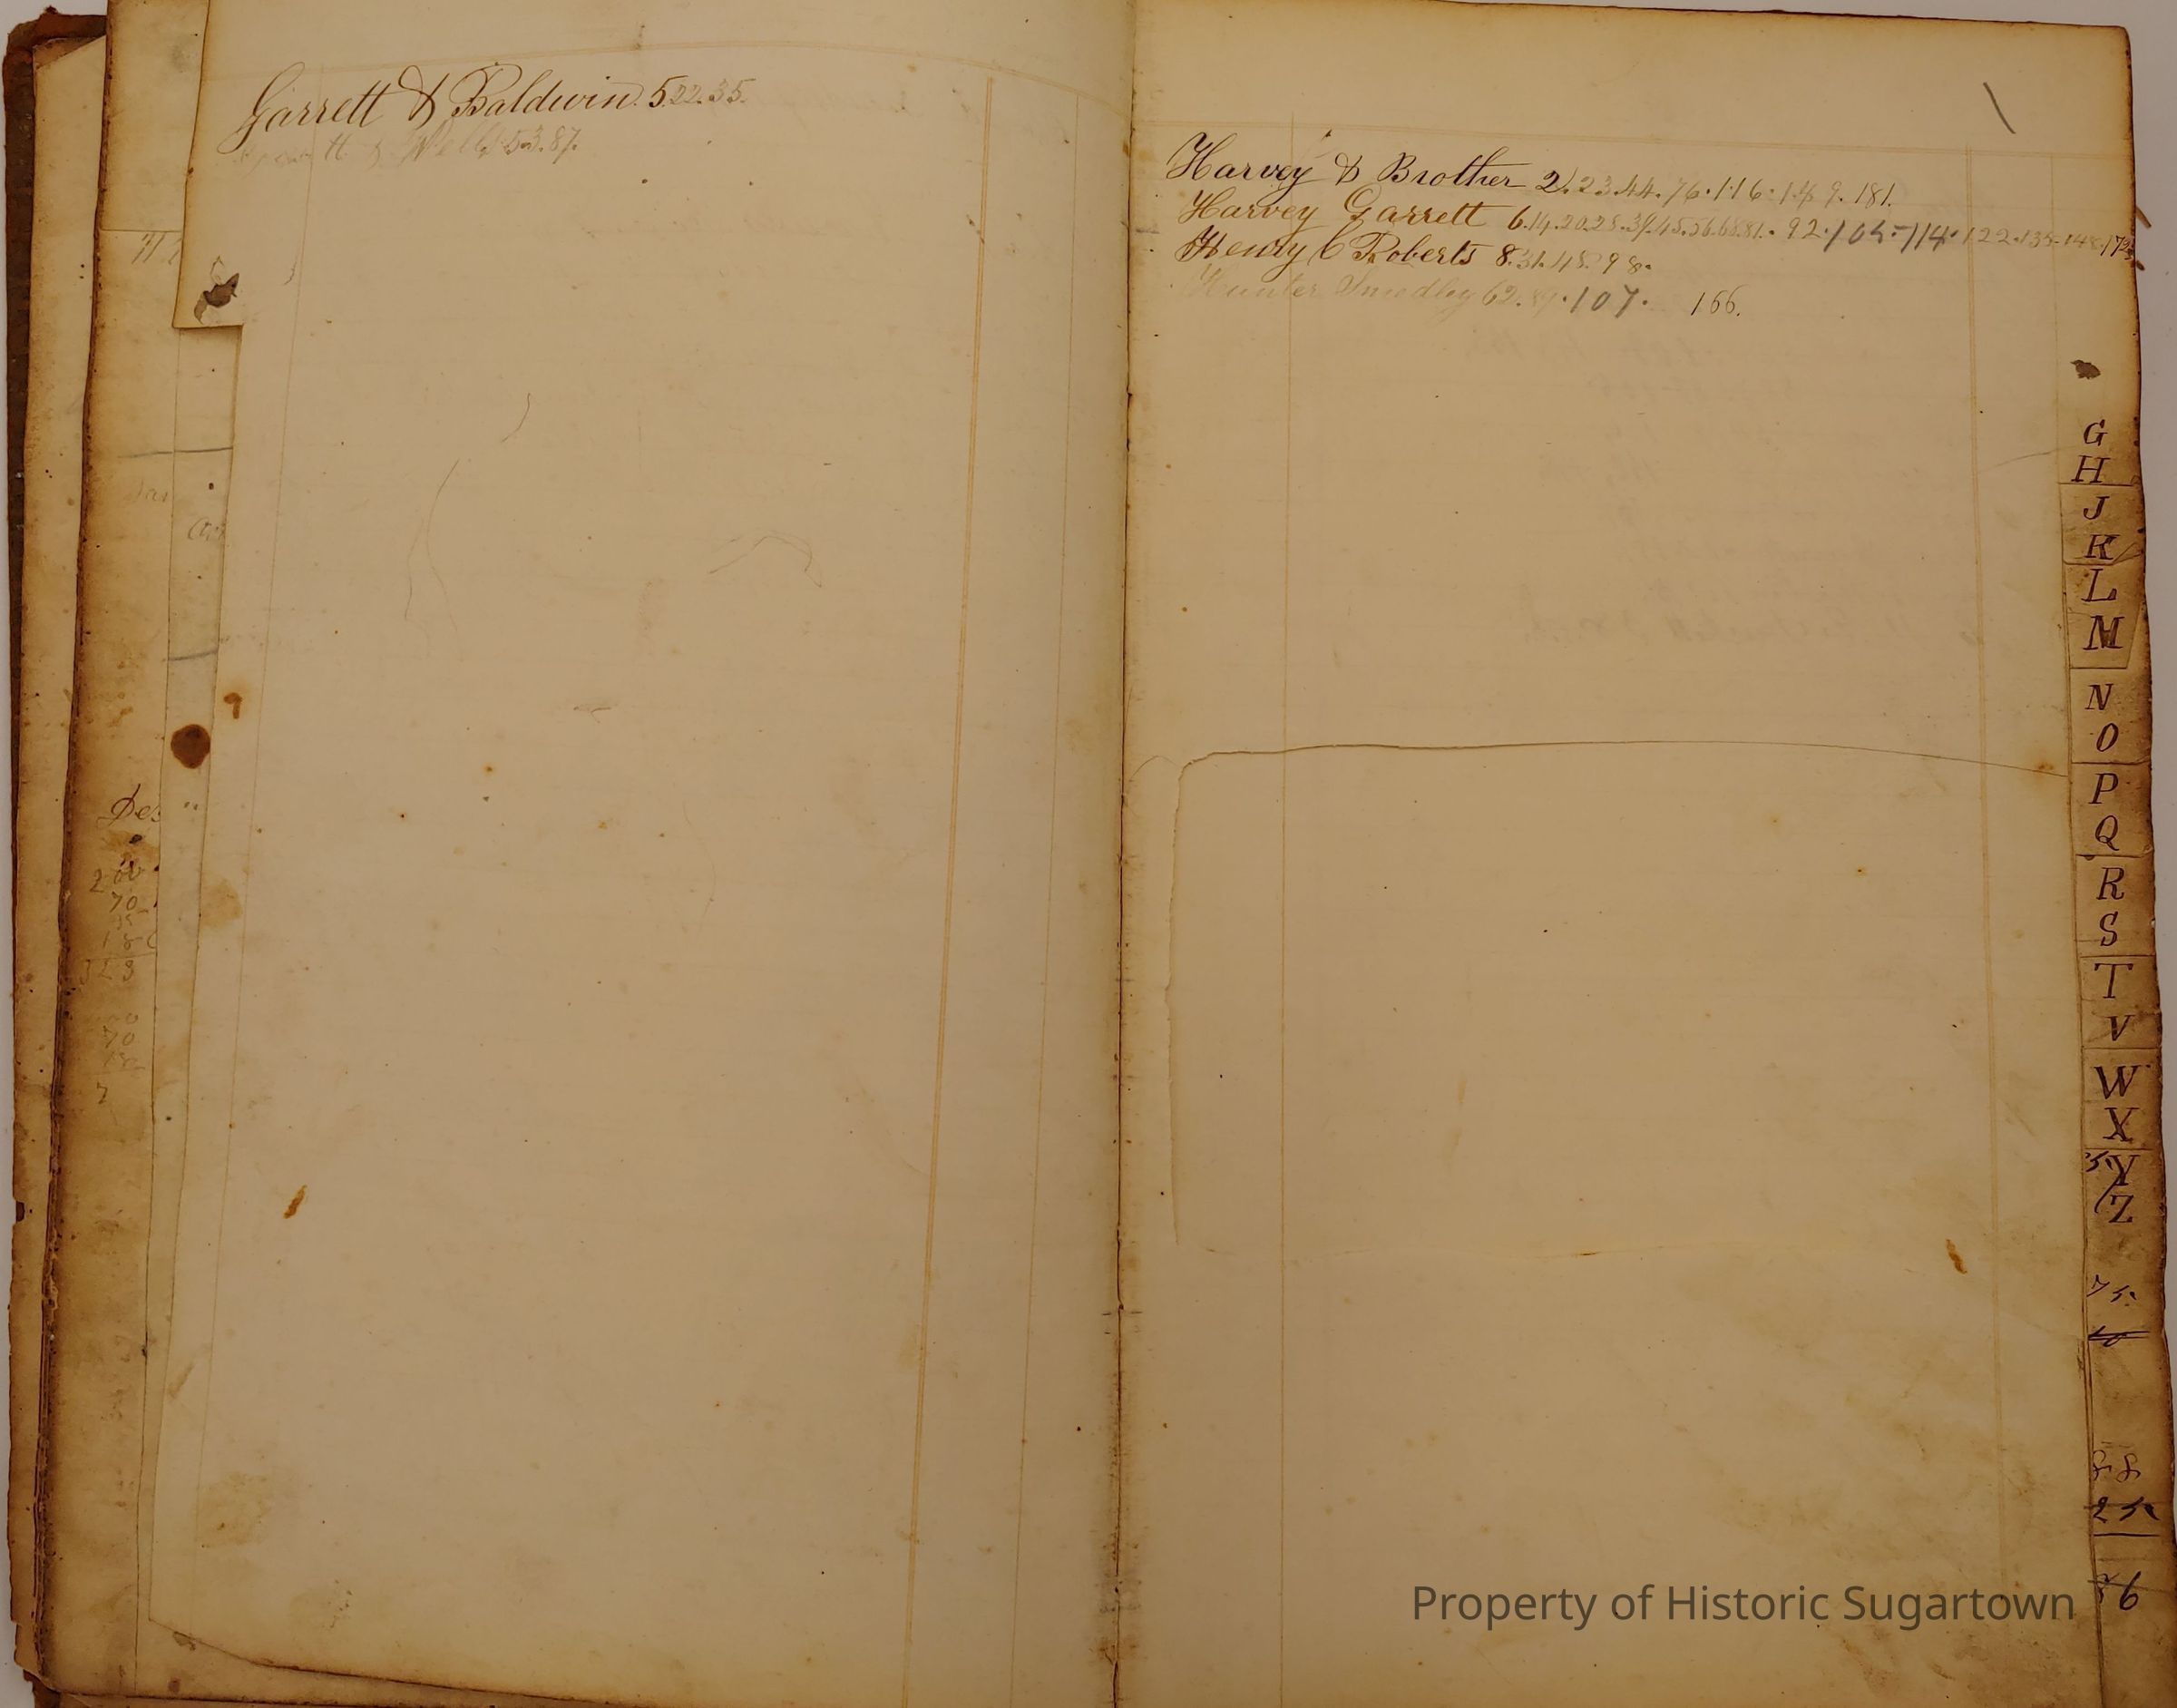 Garrett & Baldwin. 5.22.35.
& Wells 53.87.
Harvey & Brother 2.23.44.76.116.149.181.
Harvey Garrett 6.14.20.28.39.45.56.68.81. 92.105-114.122.135.148.172
Henry C Roberts 8.31.48.98.
Hunter Smedley 62. 107. 166.
G
H
J
K
L
M
N
O
P
Q
R
S
T
V
W
X
Y
Z
75
25
6
Des "
70
70
Property of Historic Sugartown